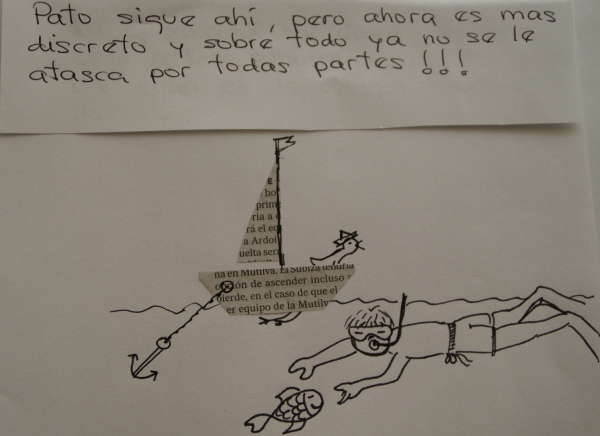 Pato sigue ahí, pero ahora es mas
discreto y sobre todo ya no se le
atasca por todas partes !!!
E
ho
prim
ria a
rá el eq
a Ardoi
uelta será
na en Mutilva. El Subiza tendría
ón de ascender incluso
pierde, en el caso de que el
er equipo de la Mutilv